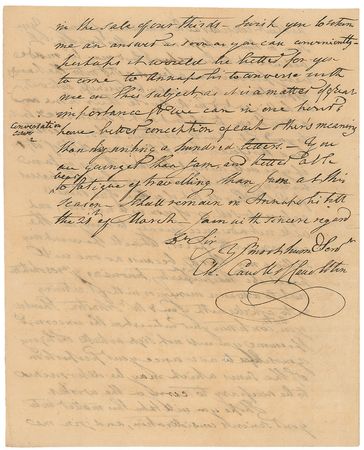 in the sale of our thirds — I wish you to return
me an answer as soon as you can conveniently —
perhaps it would be better for you
to come to Annapolis to converse with
me on this subject, as it is a matter of great
importance & we can in one hour's
Conversation
have better conception of each others meaning
than by writing a hundred letters — You
are younger than I am, and better able
to bear fatigue of travelling than I am at this
season — I shall remain in Annapolis till
the 21st of March — I am with sincere regard
Dr Sir
Yr Most hum Servt
Ch. Carroll of Carrollton